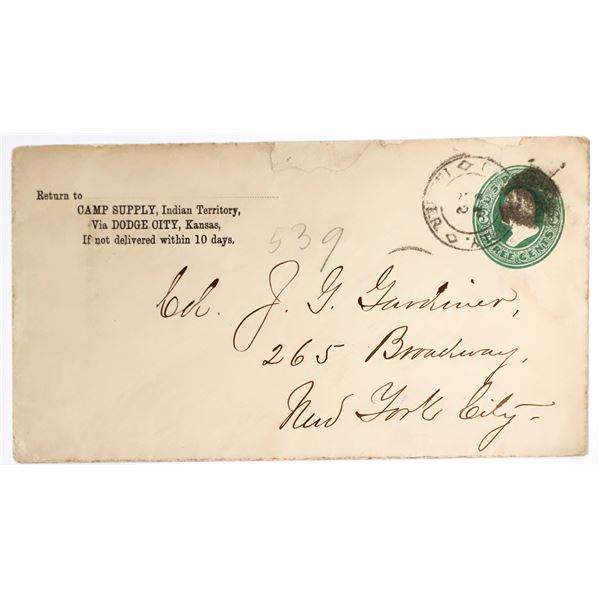 Return to
CAMP SUPPLY, Indian Territory,
Via DODGE CITY, Kansas,
If not delivered within 10 days.
539
THREE CENTS
Col. J. G. Gardiner,
265 Broadway,
New York City.